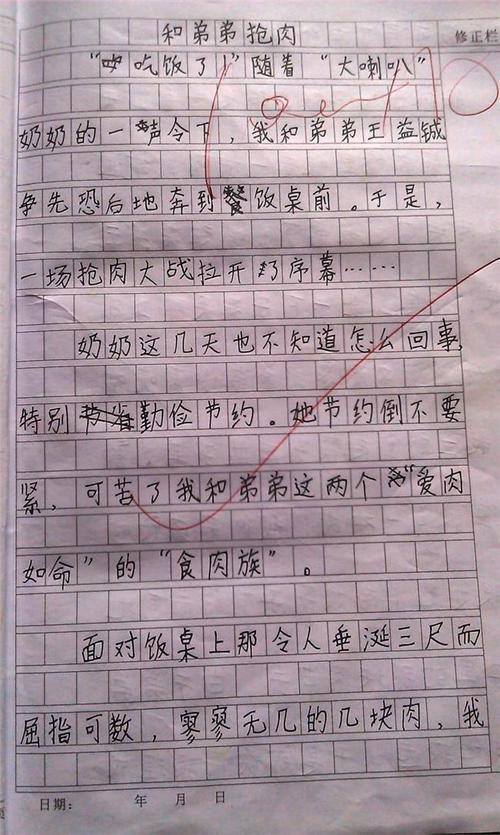 和弟弟抢肉
修正栏
“吃饭了！”随着“大喇叭”
奶奶的一声令下，我和弟弟王益铖
争先恐后地奔到餐饭桌前。于是，
一场抢肉大战拉开了序幕……
奶奶这几天也不知道怎么回事，
特别节省勤俭节约。她节约倒不要
紧，可苦了我和弟弟这两个“爱肉
如命”的“食肉族”。
面对饭桌上那令人垂涎三尺而
屈指可数，寥寥无几的几块肉，我
日期：　年　月　日